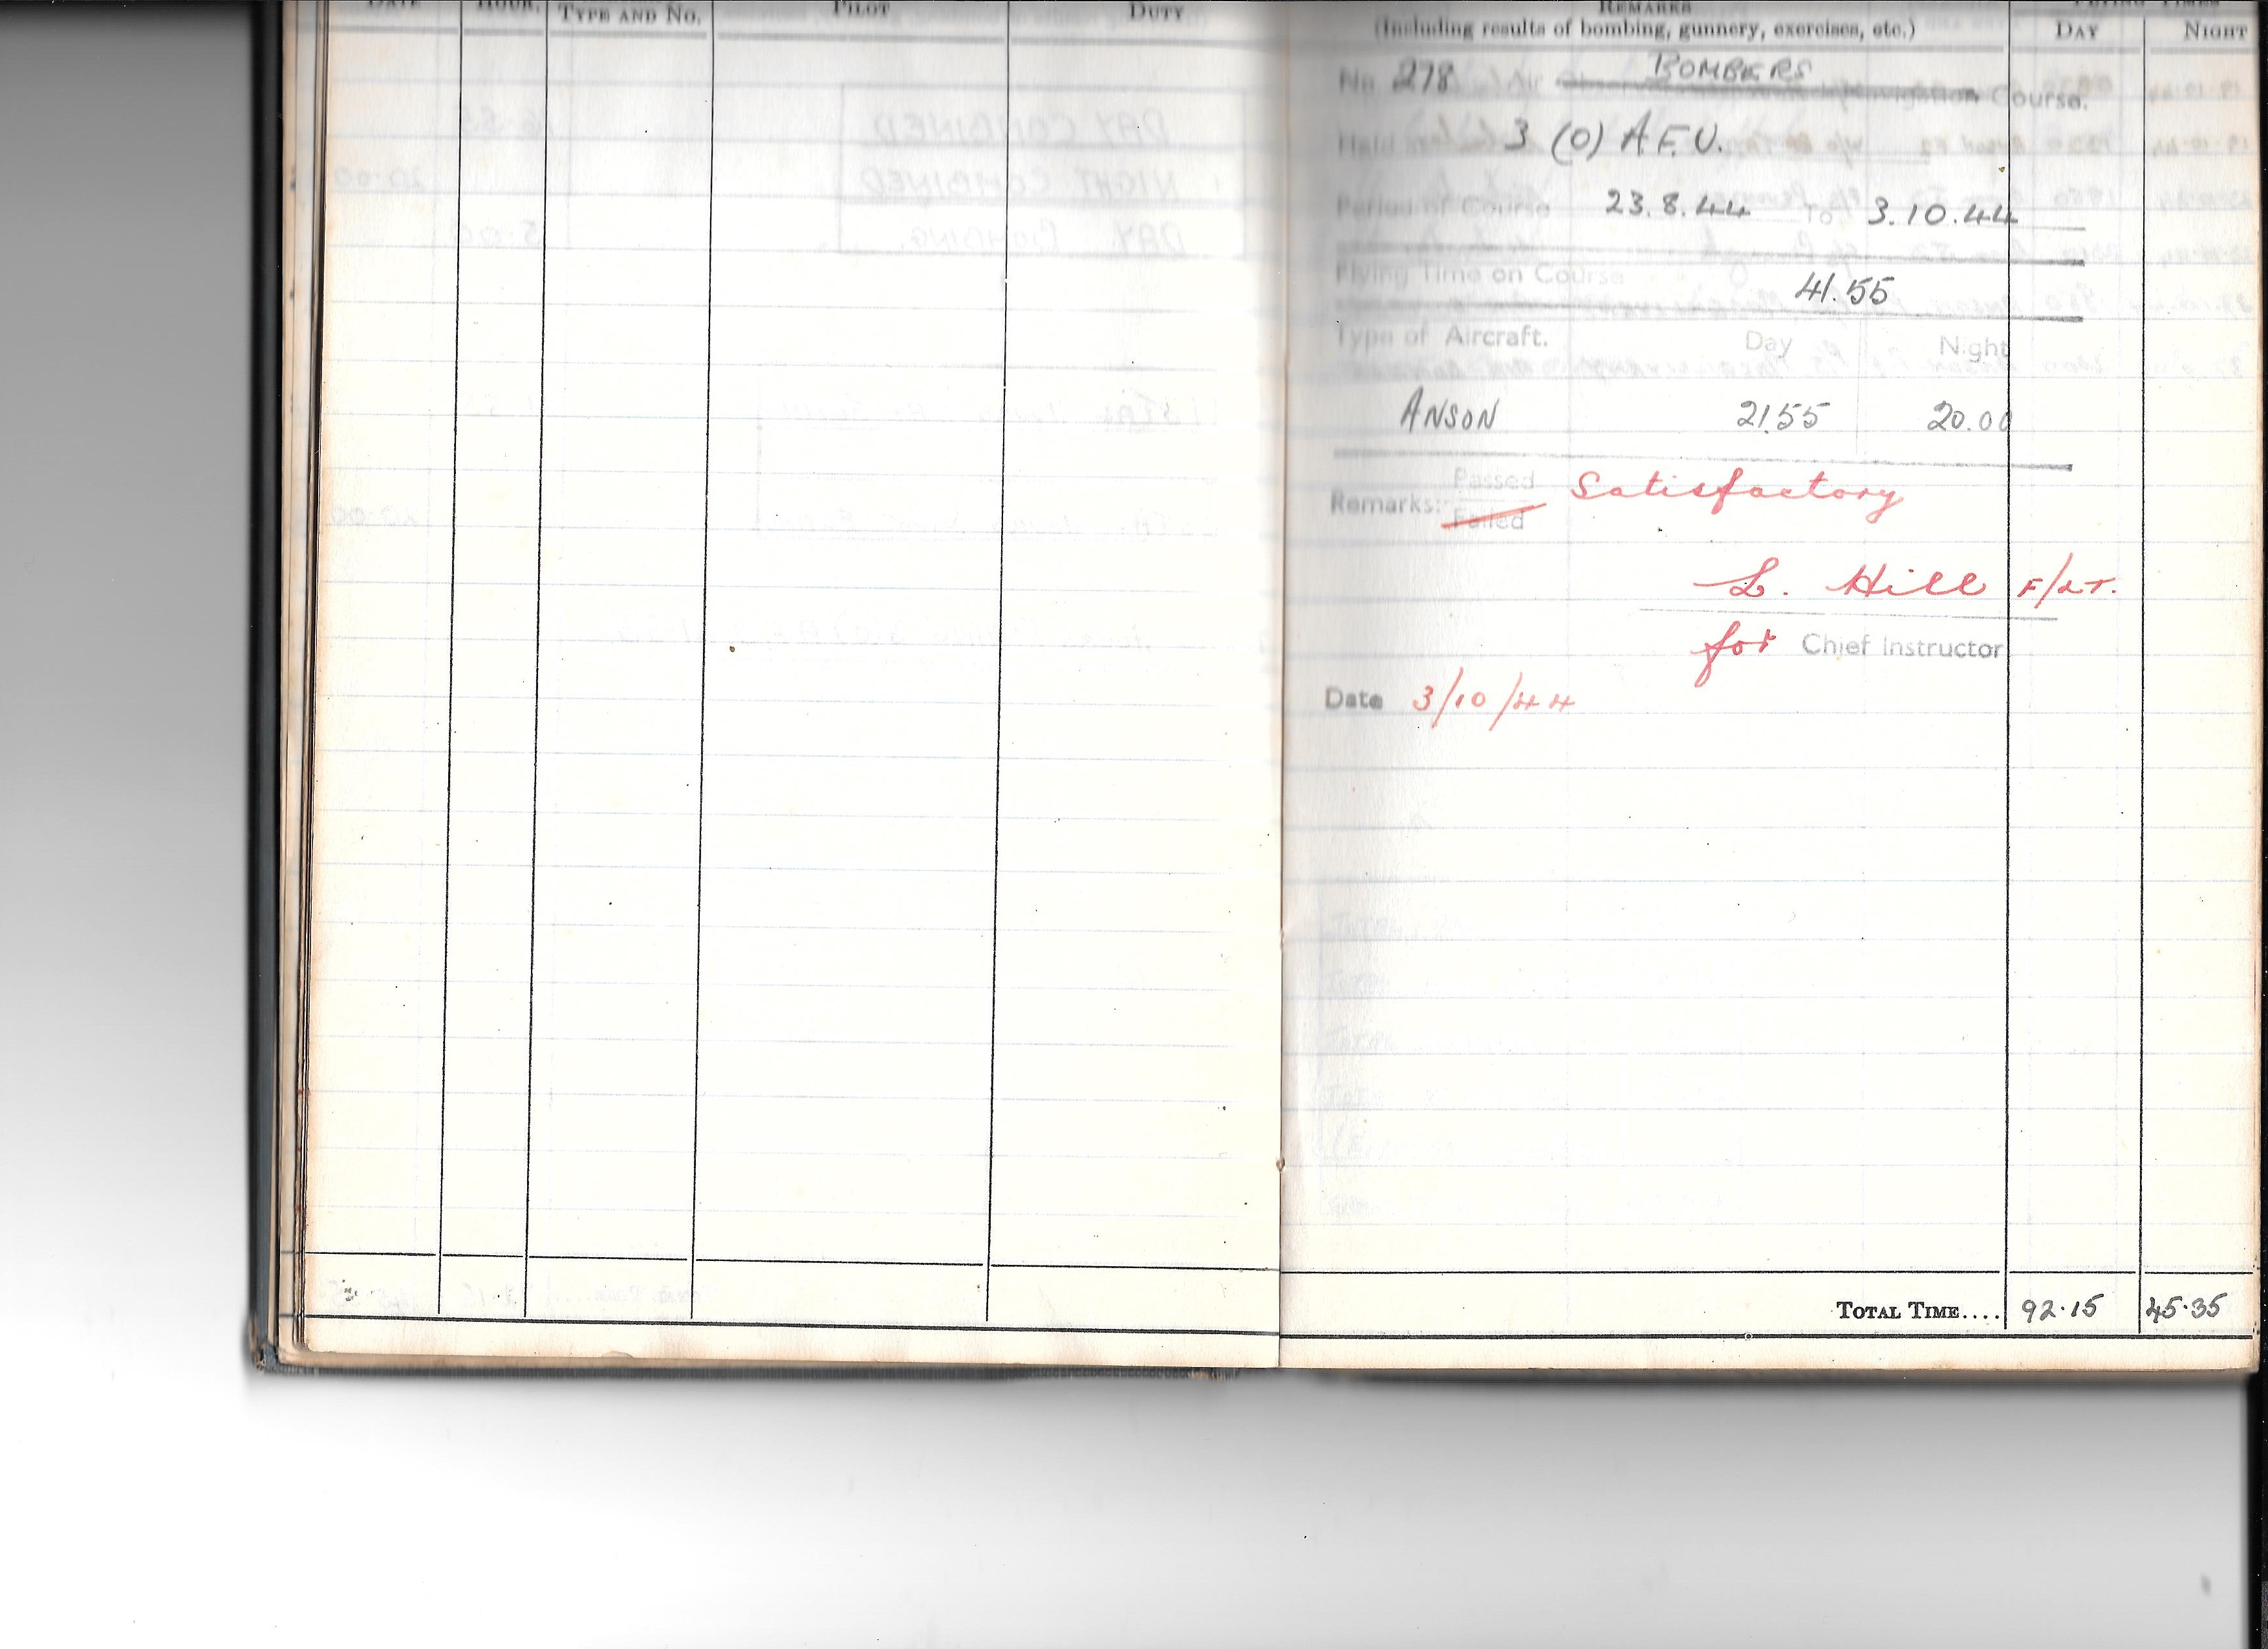 DATE HOUR. TYPE AND NO. PILOT DUTY
REMARKS
(Including results of bombing, gunnery, exercises, etc.)
FLYING TIMES
DAY NIGHT
BOMBERS
No 278 Air Navigation Course.
Held 3 (O) A.F.U.
Period of Course 23.8.44 To 3.10.44
Flying Time on Course 41.55
Type of Aircraft. Day Night
ANSON 21.55 20.00
Passed Satisfactory
Remarks:
Failed
L. Hill F/LT.
for Chief Instructor
Date 3/10/44
TOTAL TIME.... 92.15 45.35